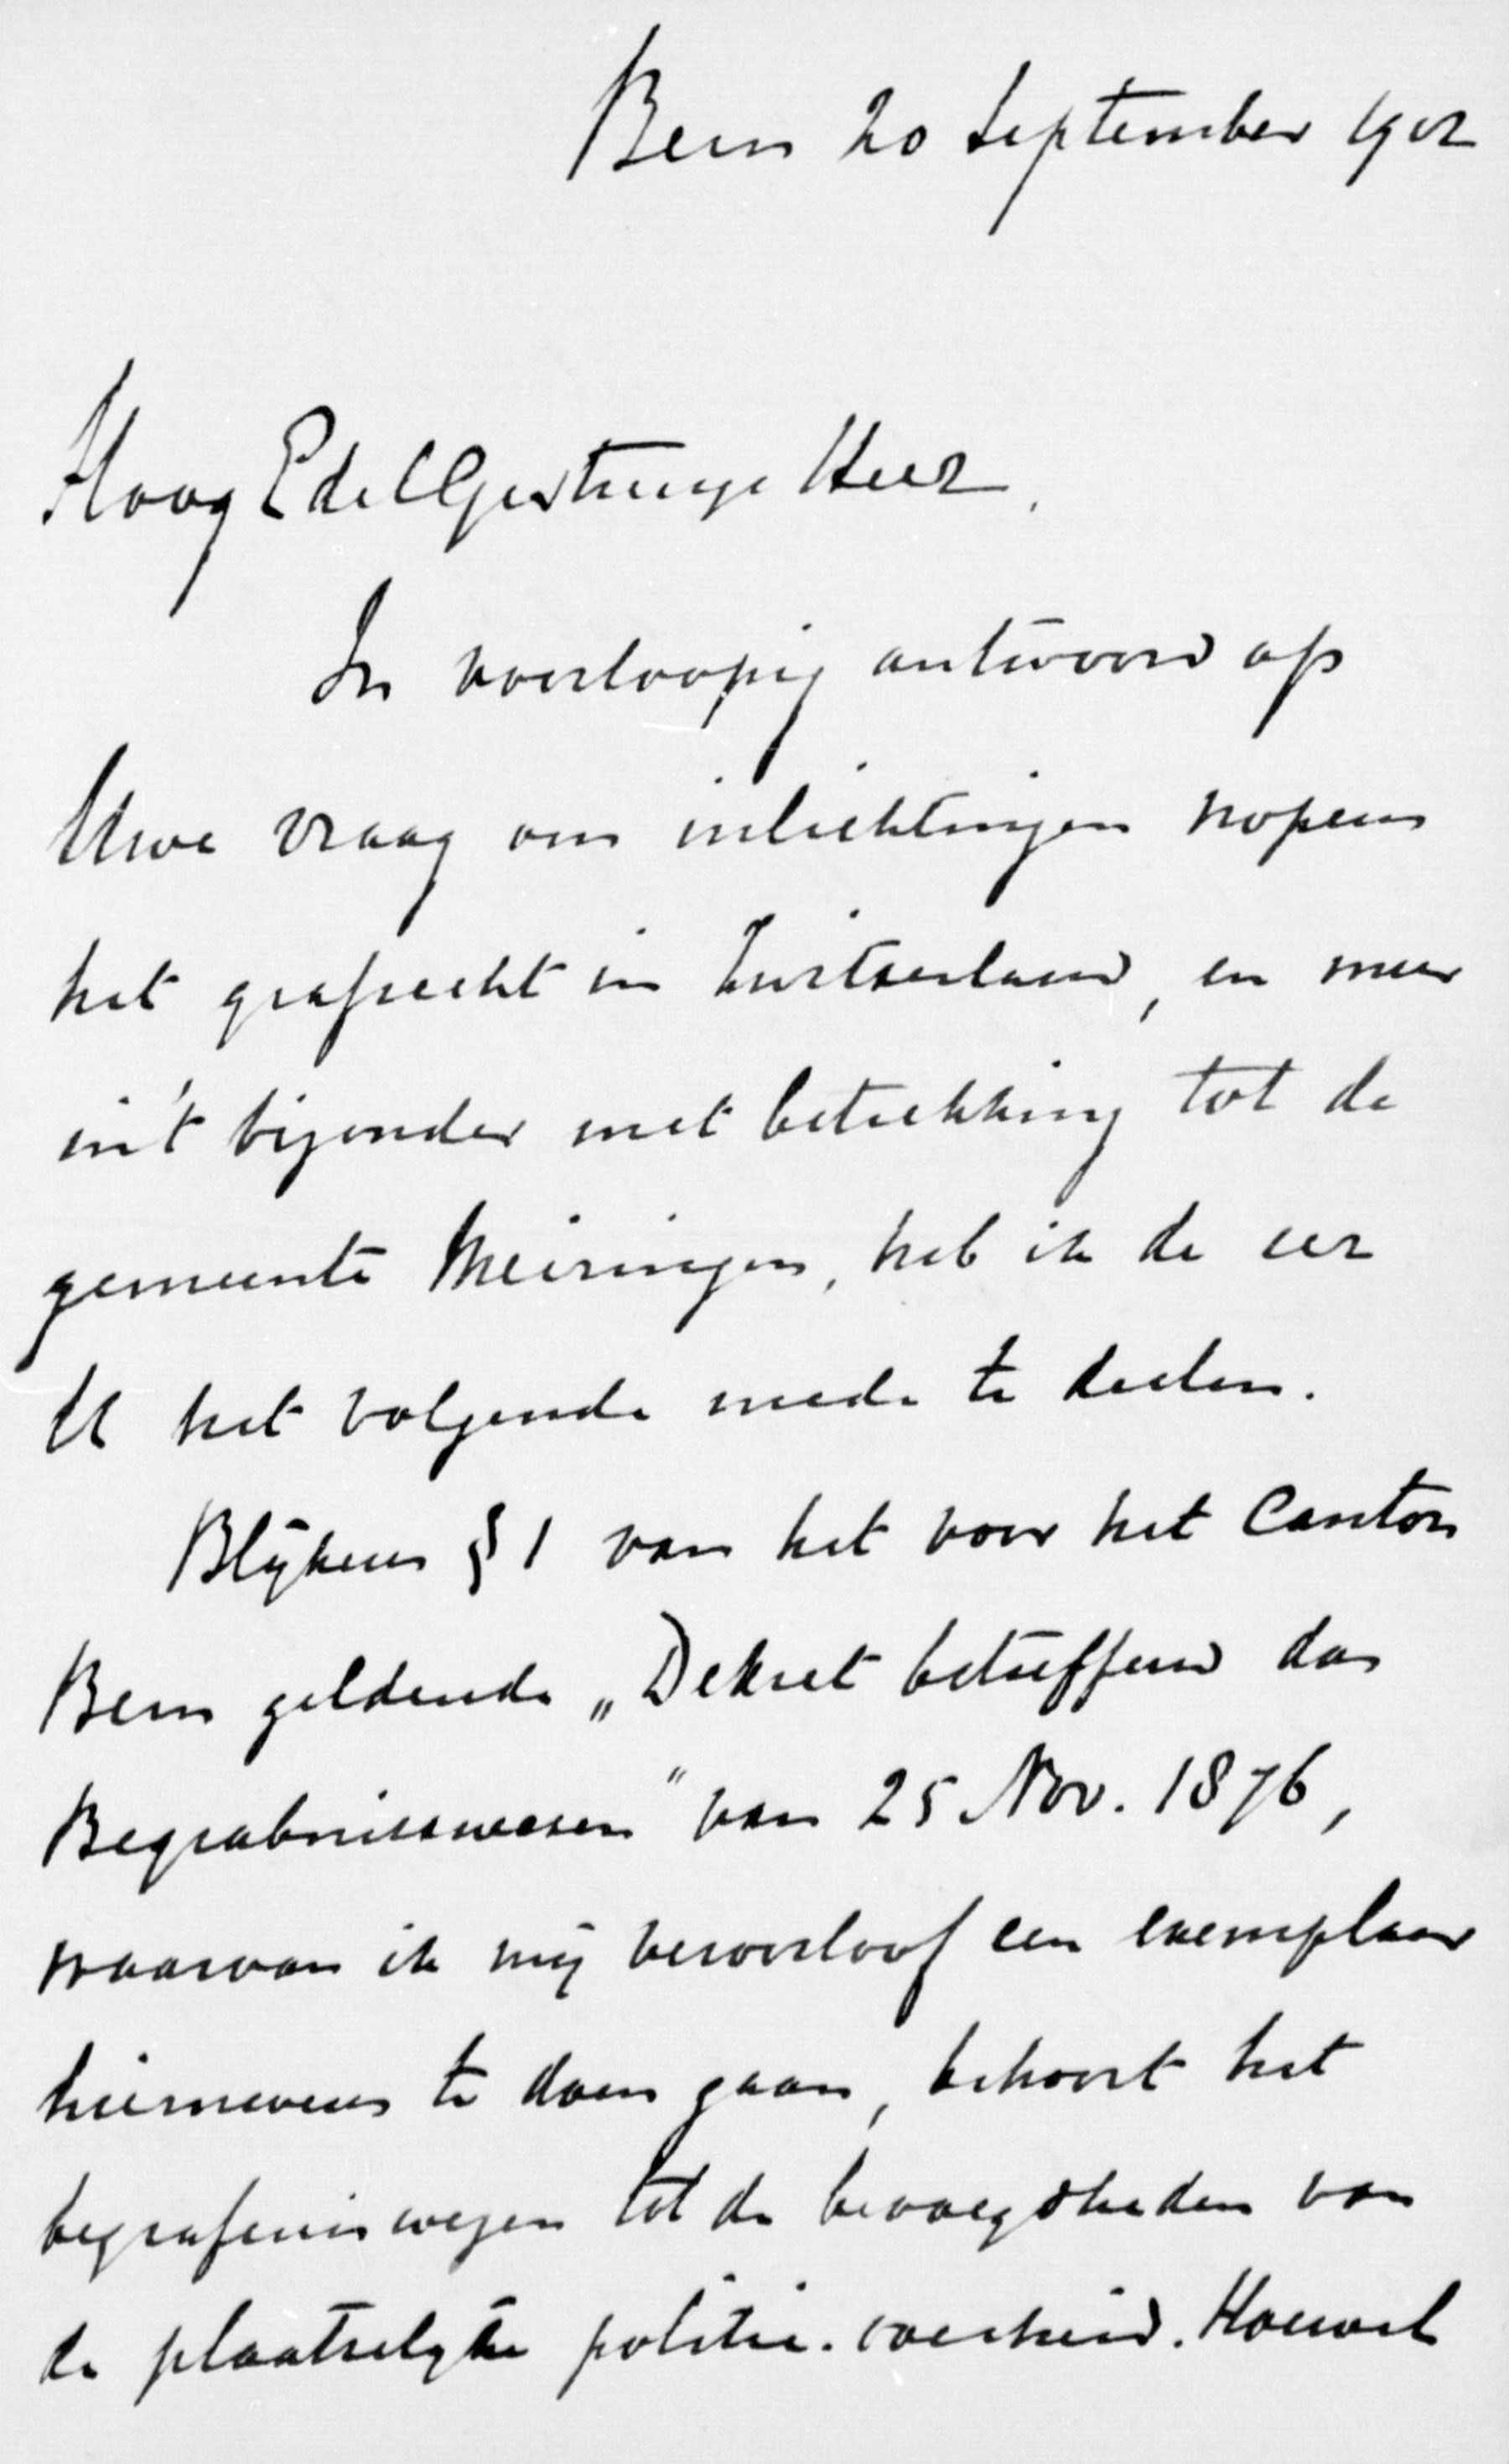 Bern 20 September 1902
HoogEdelGestrenge Heer,
In voorloopig antwoord op
Uwe vraag om inlichtingen nopens
het grafrecht in Zwitserland, en meer
in 't bijzonder met betrekking tot de
gemeente Meiringen, heb ik de eer
U het volgende mede te deelen.
Blijkens § 1 van het voor het Canton
Bern geldende „Dekret betreffend das
Begrabnisswesen" van 25 Nov. 1876,
waarvan ik mij veroorloof een exemplaar
hiernevens te doen gaan, behoort het
begrafeniswezen tot de bevoegdheden van
de plaatselijke politie-overheid. Hoewel